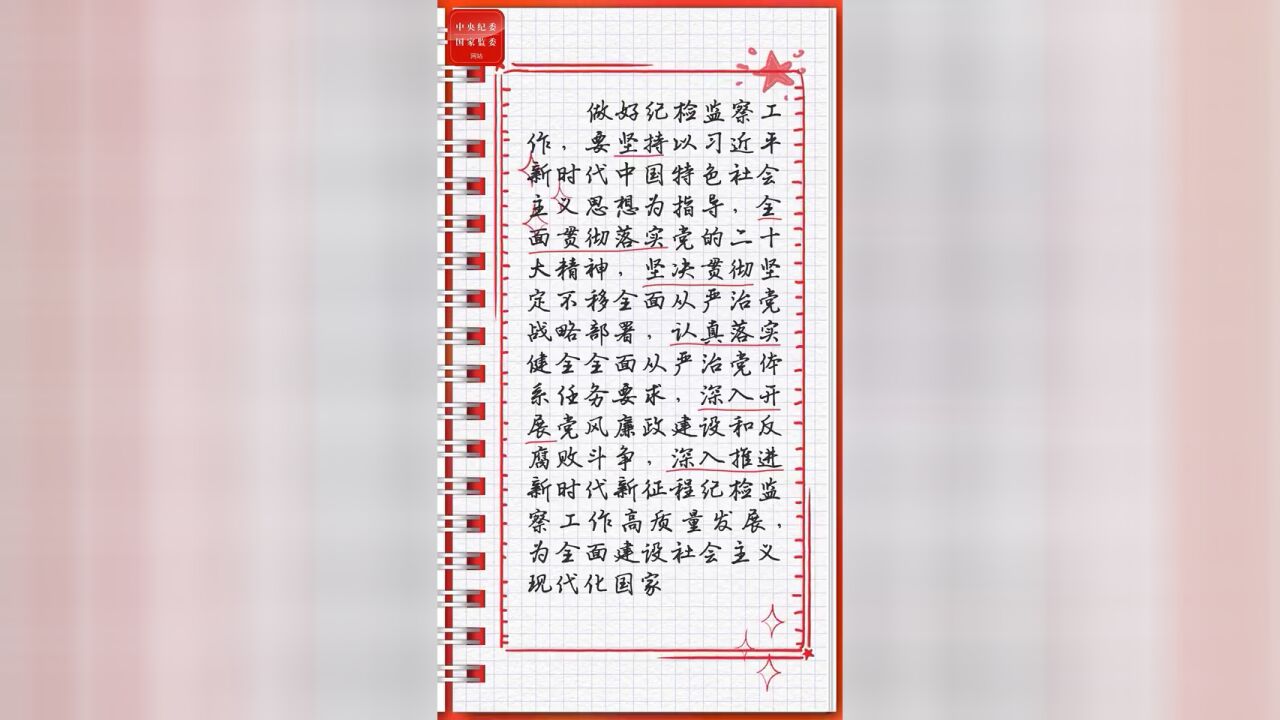 中央纪委
国家监委
网站
做好纪检监察工
作，要坚持以习近平
新时代中国特色社会
主义思想为指导，全
面贯彻落实党的二十
大精神，坚决贯彻坚
定不移全面从严治党
战略部署，认真落实
健全全面从严治党体
系任务要求，深入开
展党风廉政建设和反
腐败斗争，深入推进
新时代新征程纪检监
察工作高质量发展，
为全面建设社会主义
现代化国家